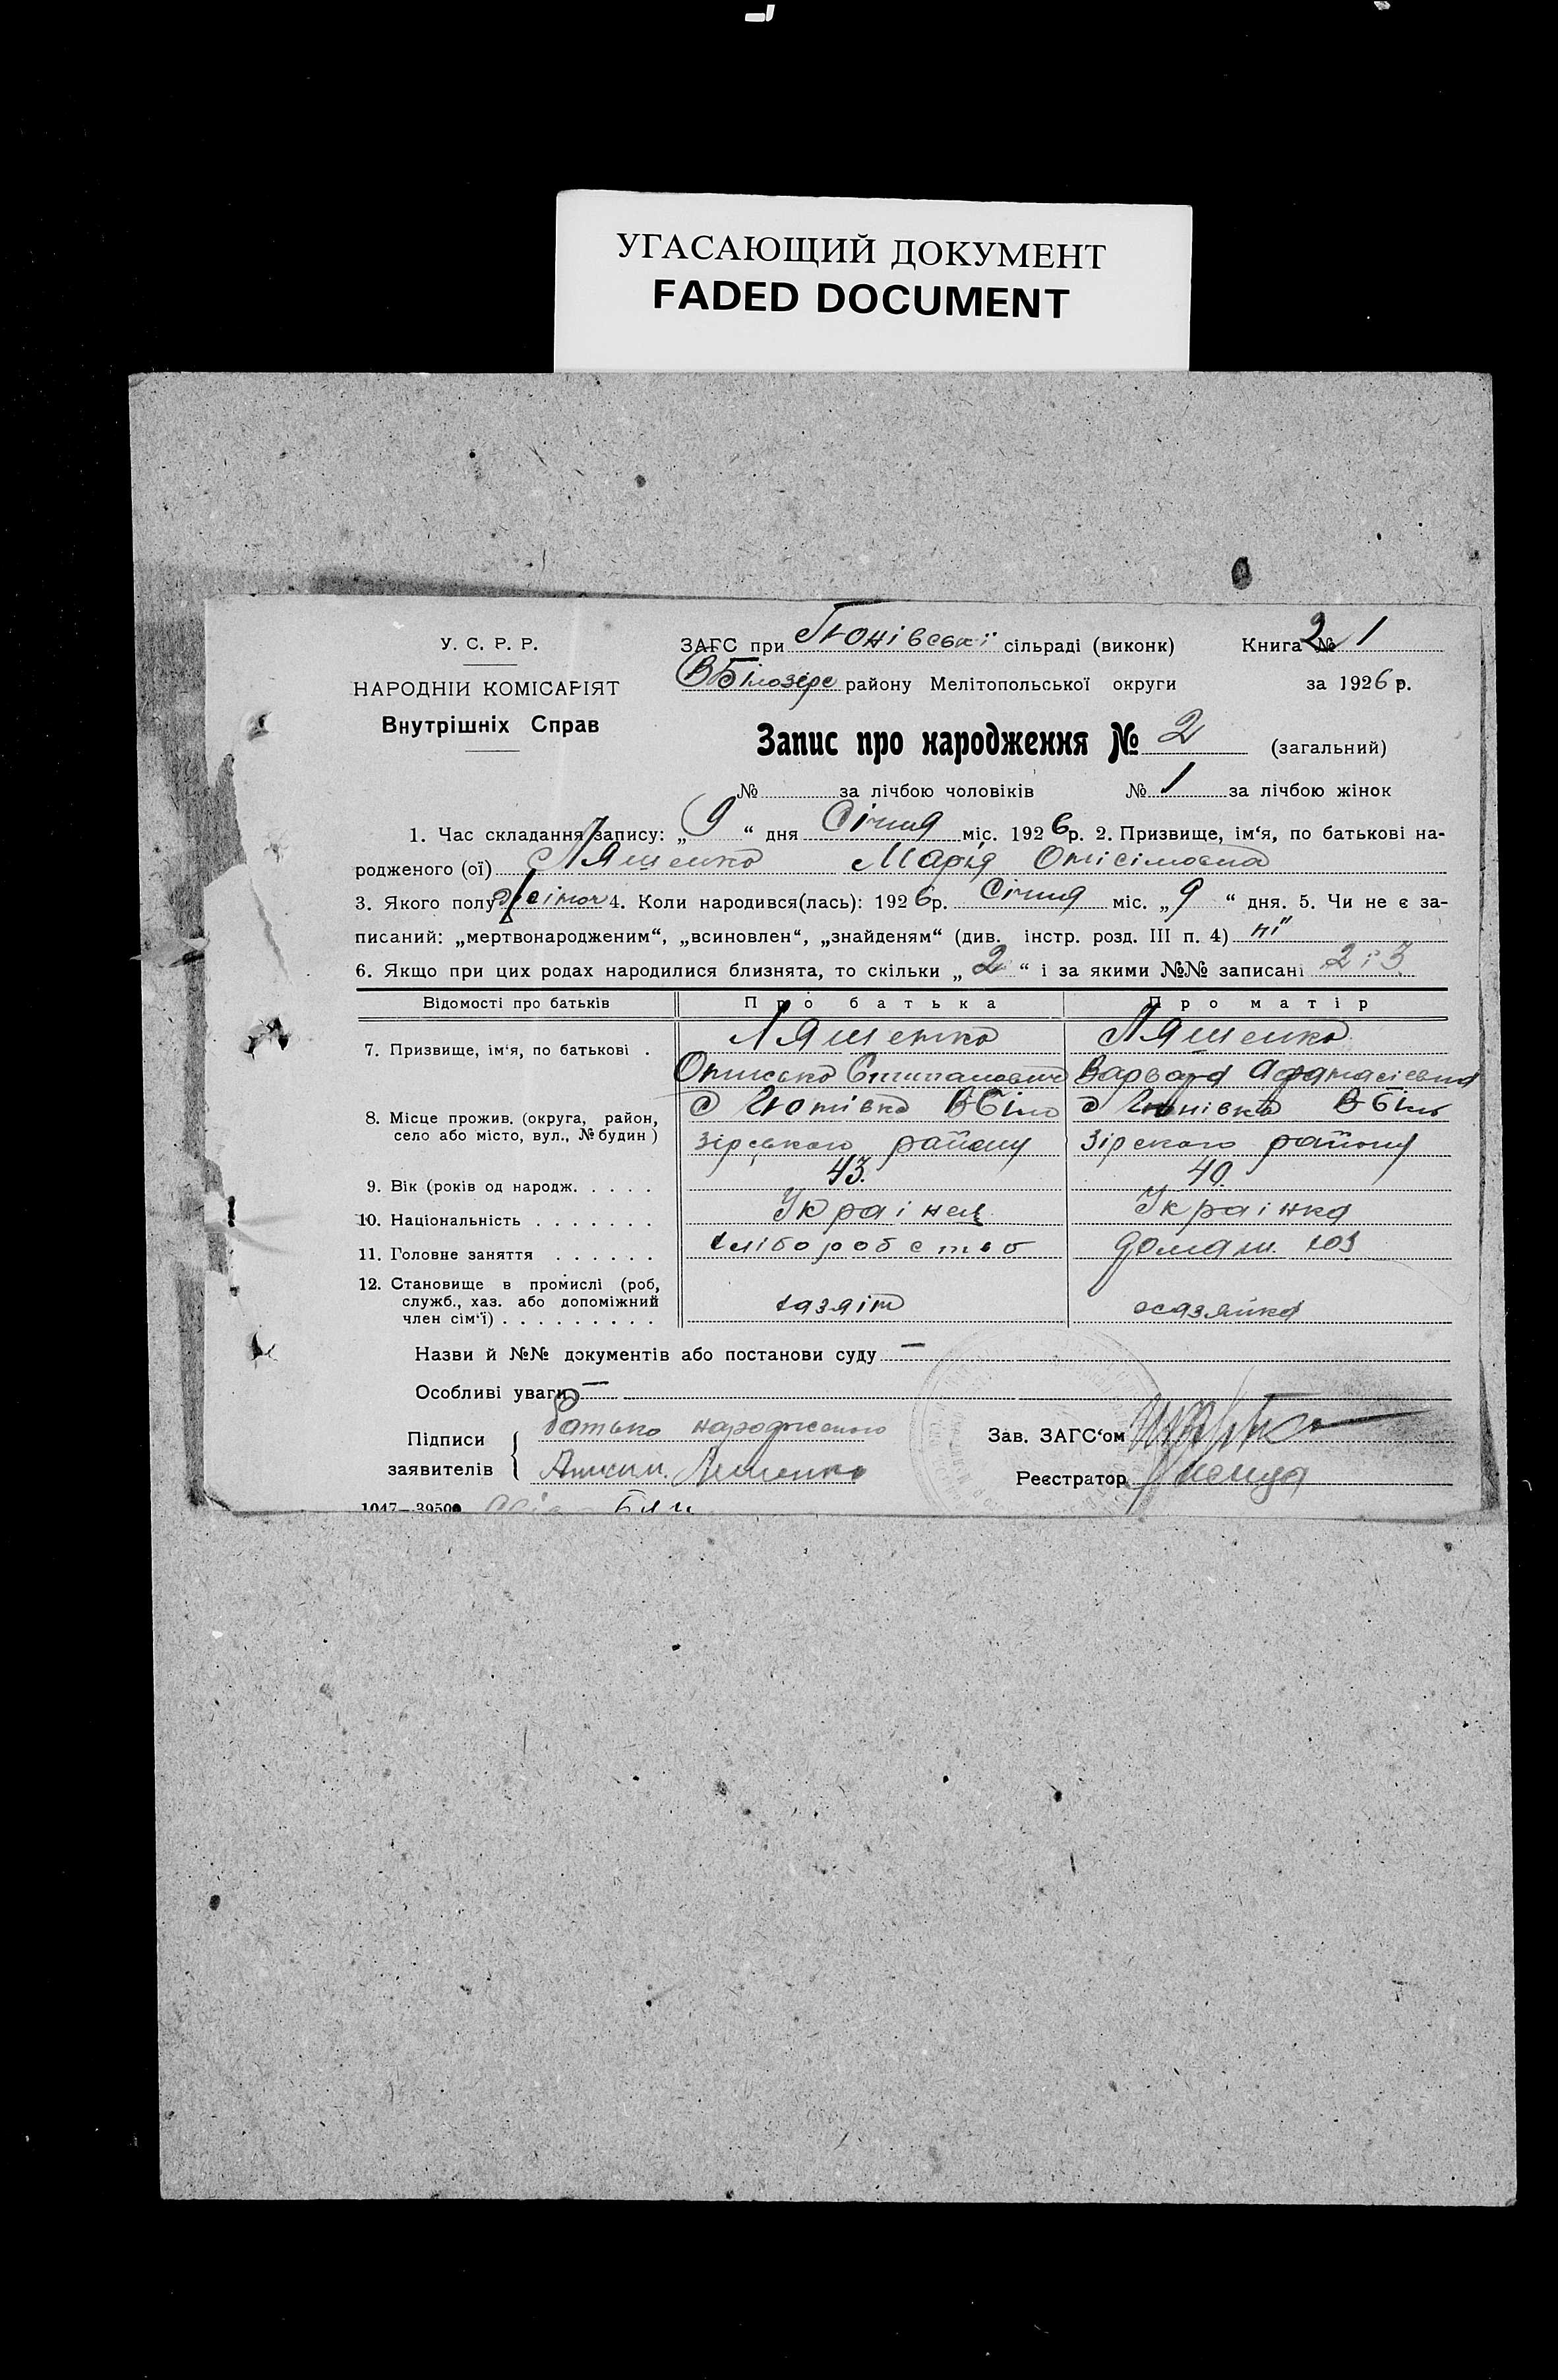 УГАСАЮЩИЙ ДОКУМЕНТ
FADED DOCUMENT
У. С. Р. Р.
НАРОДНІЙ КОМІСАРІЯТ
Внутрішніх Справ
ЗАГС при сільраді (виконк) Книга № 2 1
ВБілозірс району Мелітопольської округи за 1926 р.
Запис про народження № 2 (загальний)
№ за лічбою чоловіків № 1 за лічбою жінок
1. Час складання запису: „ 9 “ дня Січня міс. 1926 р. 2. Призвище, ім‘я, по батькові на-
родженого (ої) Ляшенко Марія Онісімовна
3. Якого полу 4. Коли народився(лась): 1926 р. Січня міс. „ 9 “ дня. 5. Чи не є за-
писаний: „мертвонародженим“, „всиновлен“, „знайденям“ (див. інстр. розд. III п. 4) ні
6. Якщо при цих родах народилися близнята, то скільки „ 2 “ і за якими №№ записані 2 і 3
Відомості про батьків Про батька Про матір
7. Призвище, ім‘я, по батькові . Ляшенко Ляшенко
Онисько Стипанович Варвара Афанасієвна
8. Місце прожив. (округа, район, село або місто, вул., № будин) с ВБіло с ВБіло
зірського району зірского району
9. Вік (років од народж. . . . . 43. 40.
10. Національність . . . . . . . Україне&#1094; Українка
11. Головне заняття . . . . . . хліборобство домашн. хоз
12. Становище в промислі (роб, служб., хаз. або допоміжний член сім‘ї) . . . . . . . . . хазяїн хазяйка
Назви й №№ документів або постанови суду —
Особливі уваги —
Підписи заявителів батько народженого
Ляшенко
Зав. ЗАГС‘ом
Реєстратор
1047—39500